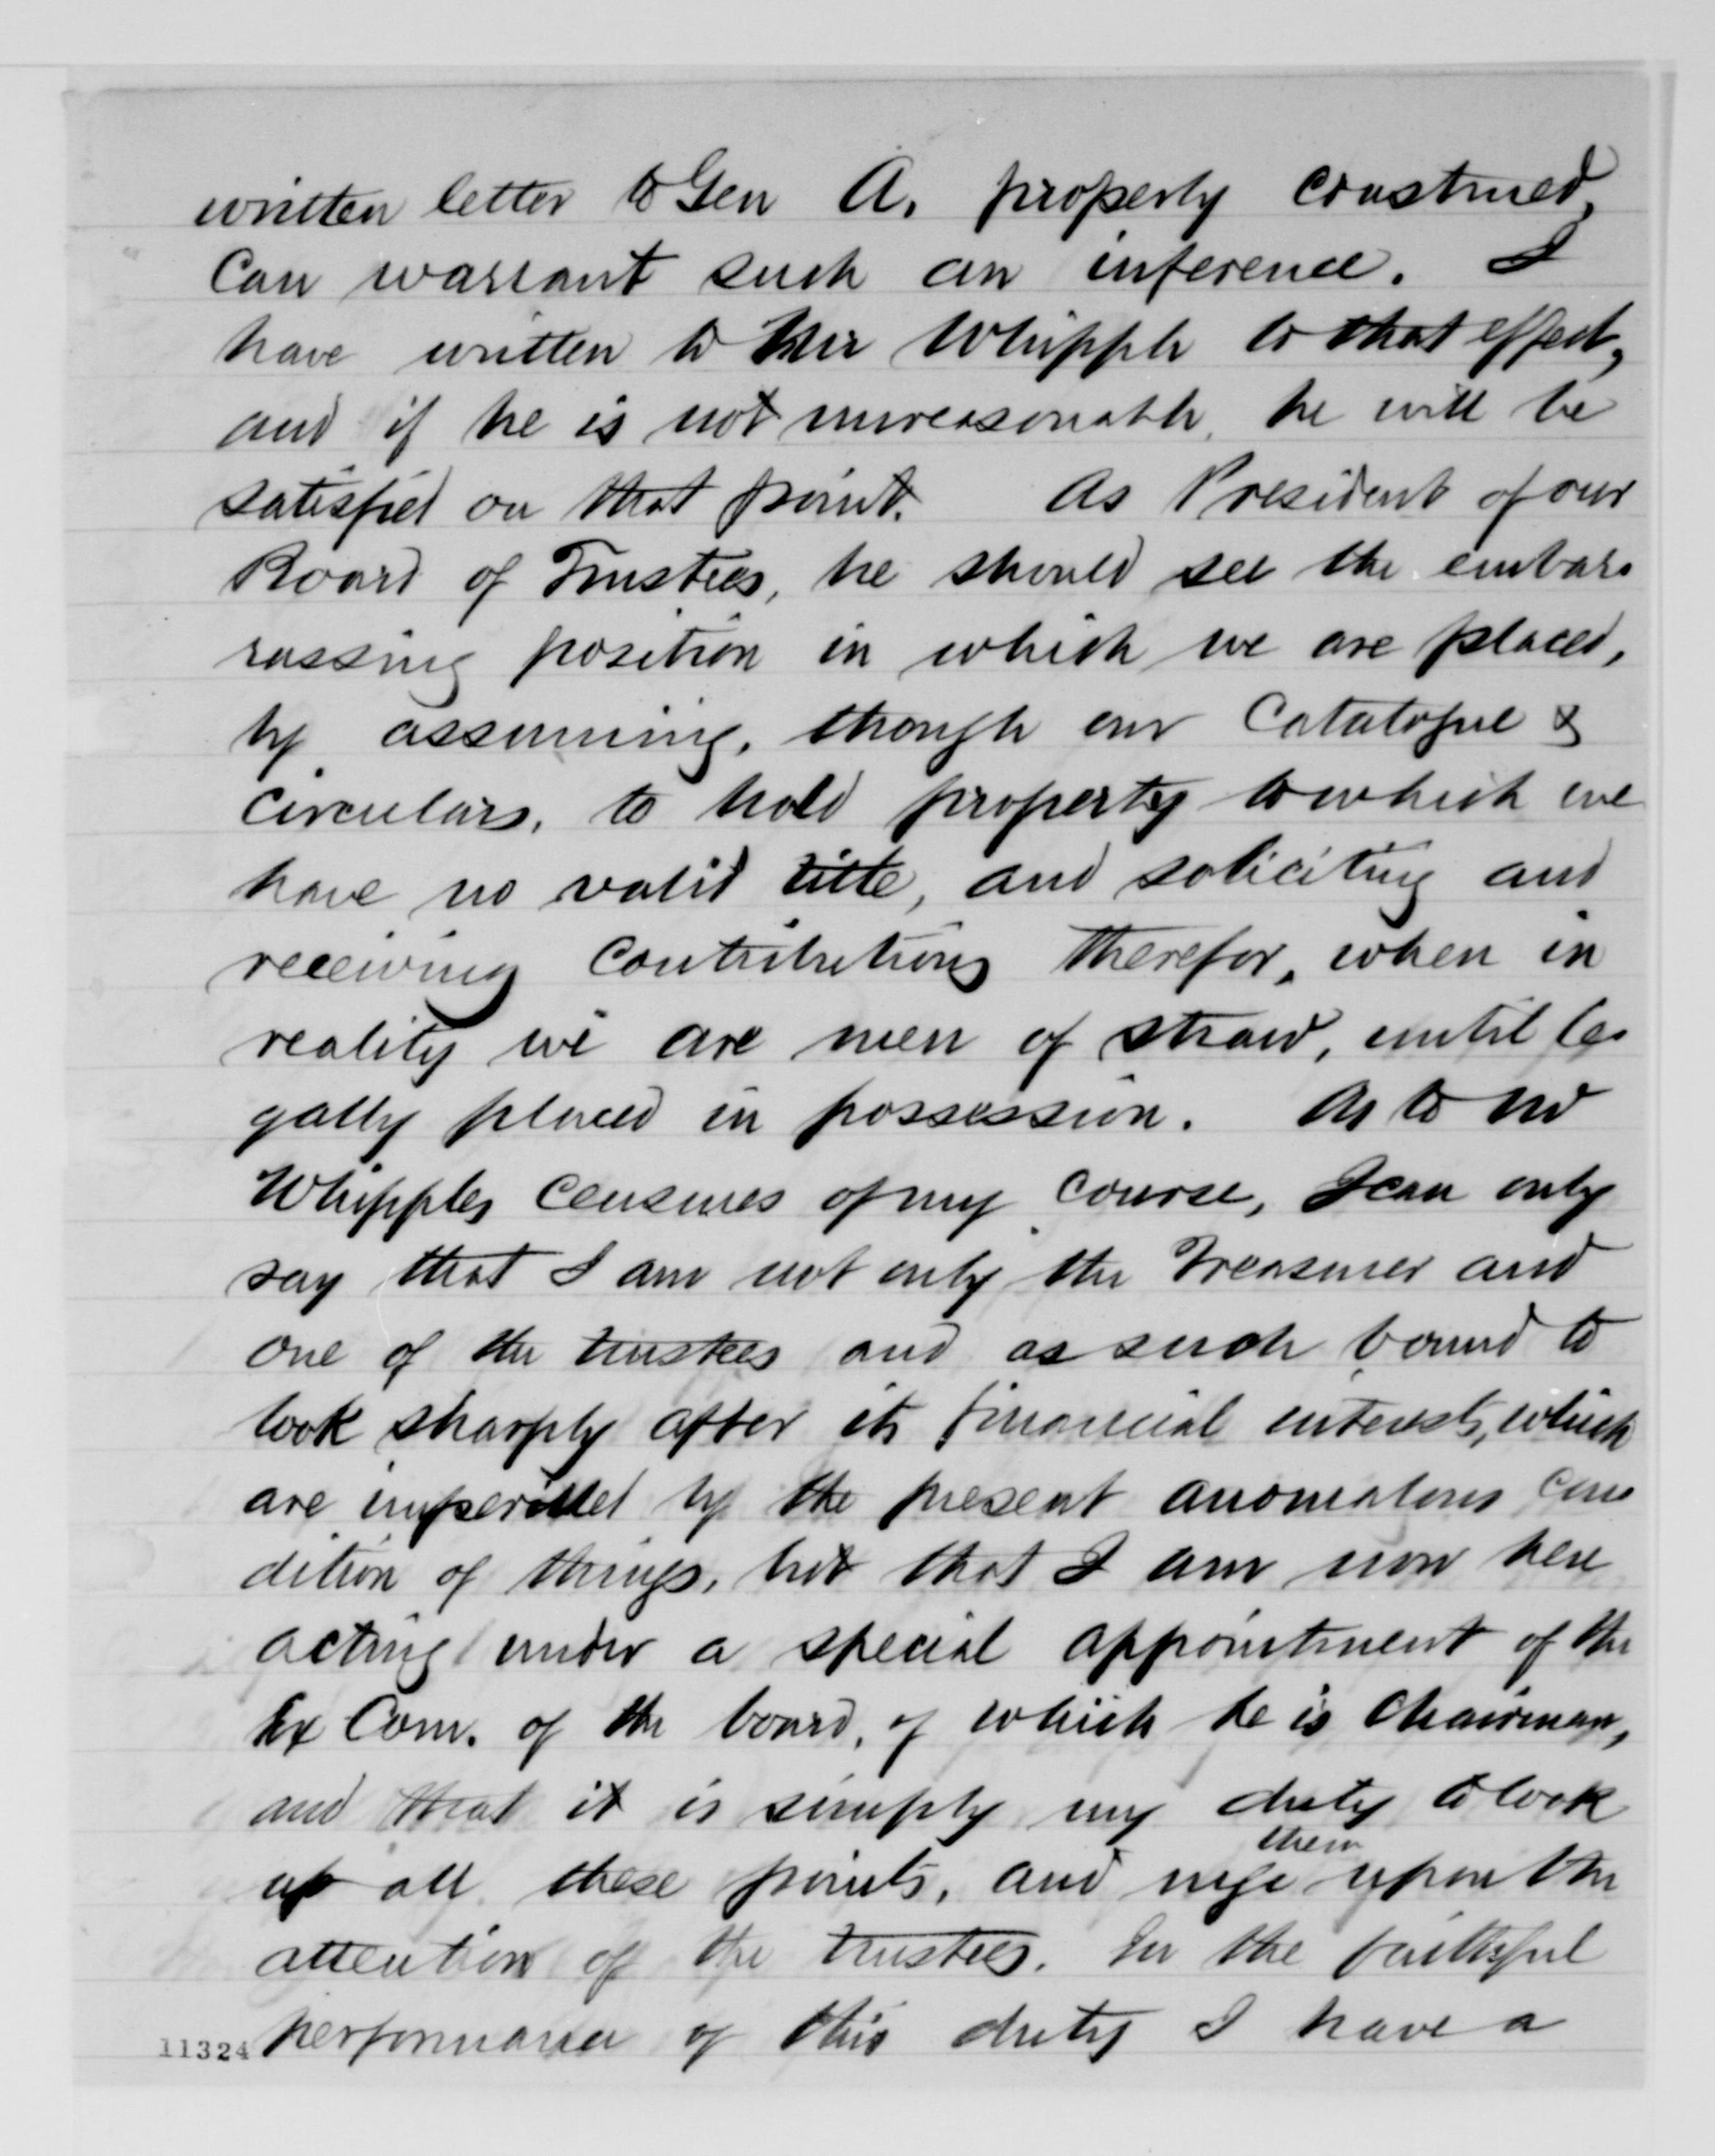 written letter to Gen A. properly construed,
Can warrant such an inference. I
have written to Mr Whipple to that effect,
and if he is not unreasonable, he will be
satisfied on that point. As President of our
Board of Trustees, he should see the embar-
rassing position in which we are placed,
by assuming, though our Catalogue &
Circulars, to hold property to which we
have no valid title, and soliciting and
receiving Contributions therefor, when in
reality we are men of straw, until le-
gally placed in possession. As to Mr
Whipples censures of my course, I can only
say that I am not only the Treasurer and
one of the trustees and as such bound to
look sharply after its financial interests, which
are imperilled by the present anomalous con-
dition of things, but that I am now here
acting under a special appointment of the
Ex Com. of the board, of which he is Chairman,
and that it is simply my duty to look
up all these points, and urge them upon the
attention of the trustees. In the faithful
performance of this duty I have a
11324